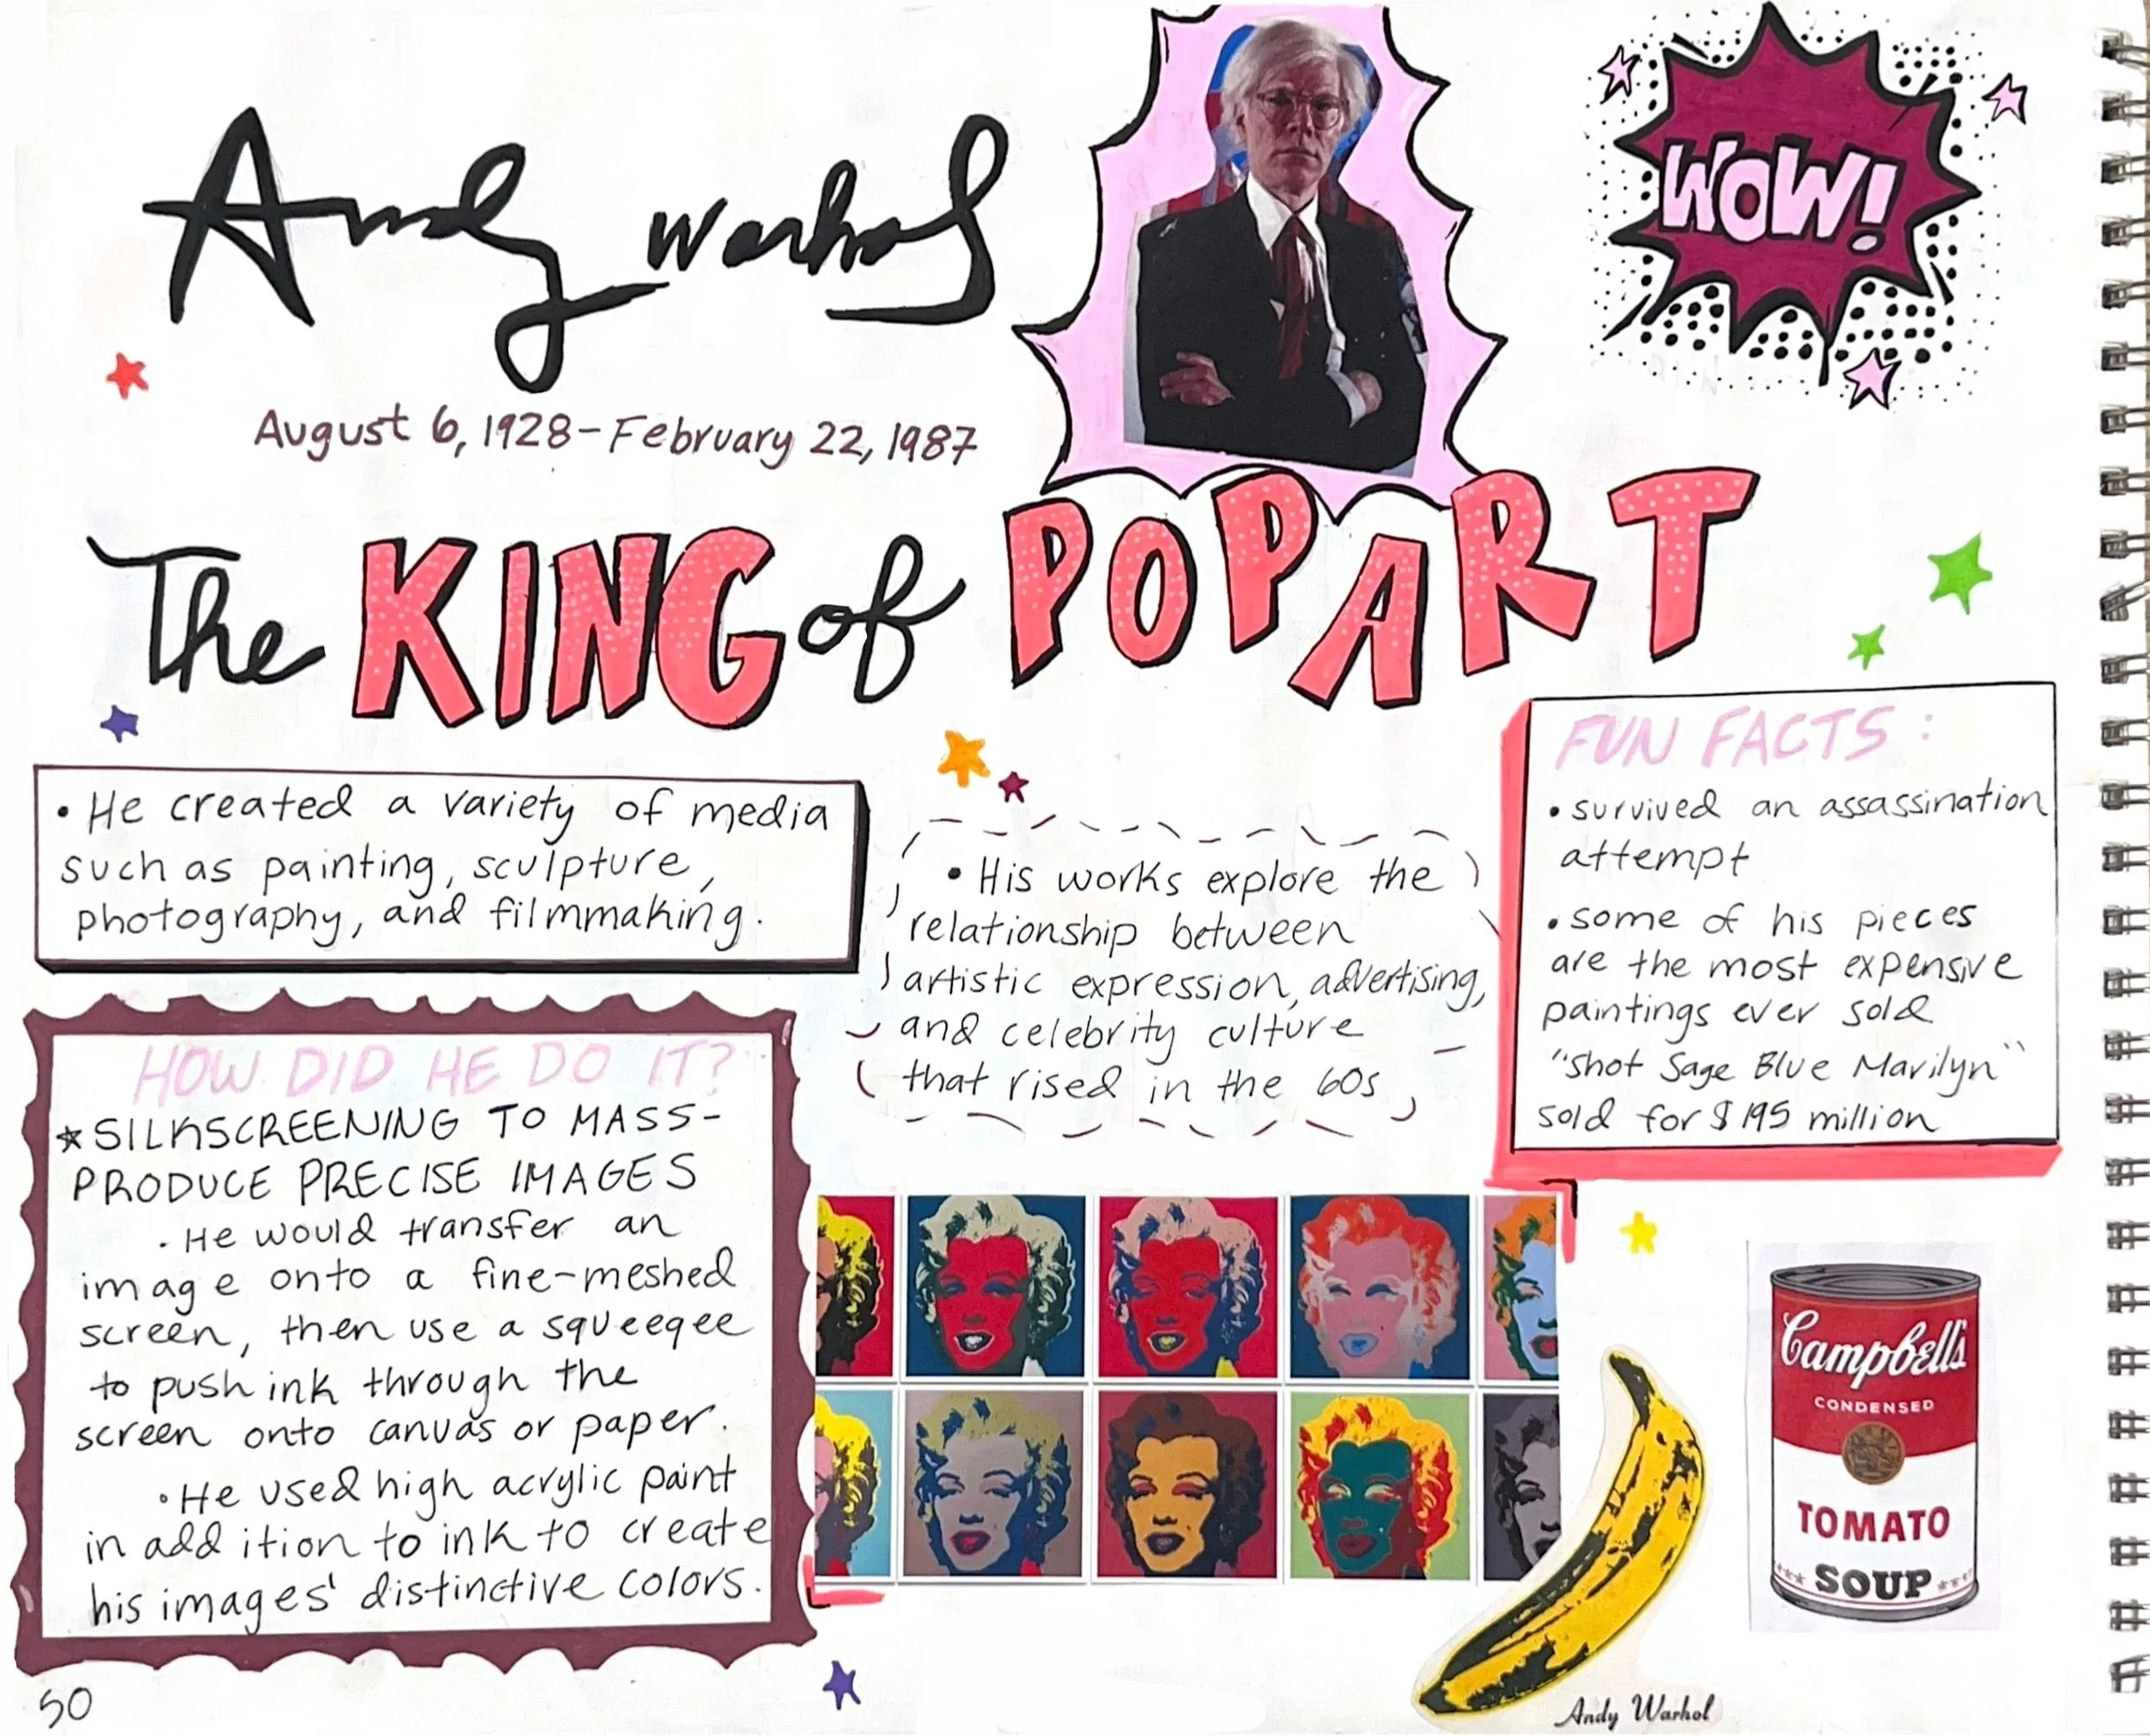 Andy Warhol
WOW!
August 6, 1928 - February 22, 1987
The KING of POP ART
• He created a variety of media
such as painting, sculpture,
photography, and filmmaking.
• His works explore the
relationship between
artistic expression, advertising,
and celebrity culture
that rised in the 60s
FUN FACTS:
• survived an assassination
attempt
• some of his pieces
are the most expensive
paintings ever sold
"Shot Sage Blue Marilyn"
sold for $195 million
HOW DID HE DO IT?
★ SILKSCREENING TO MASS-
PRODUCE PRECISE IMAGES
• He would transfer an
image onto a fine-meshed
screen, then use a squeegee
to push ink through the
screen onto canvas or paper.
• He used high acrylic paint
in addition to ink to create
his images' distinctive colors.
Campbell's
CONDENSED
TOMATO
SOUP
Andy Warhol
50